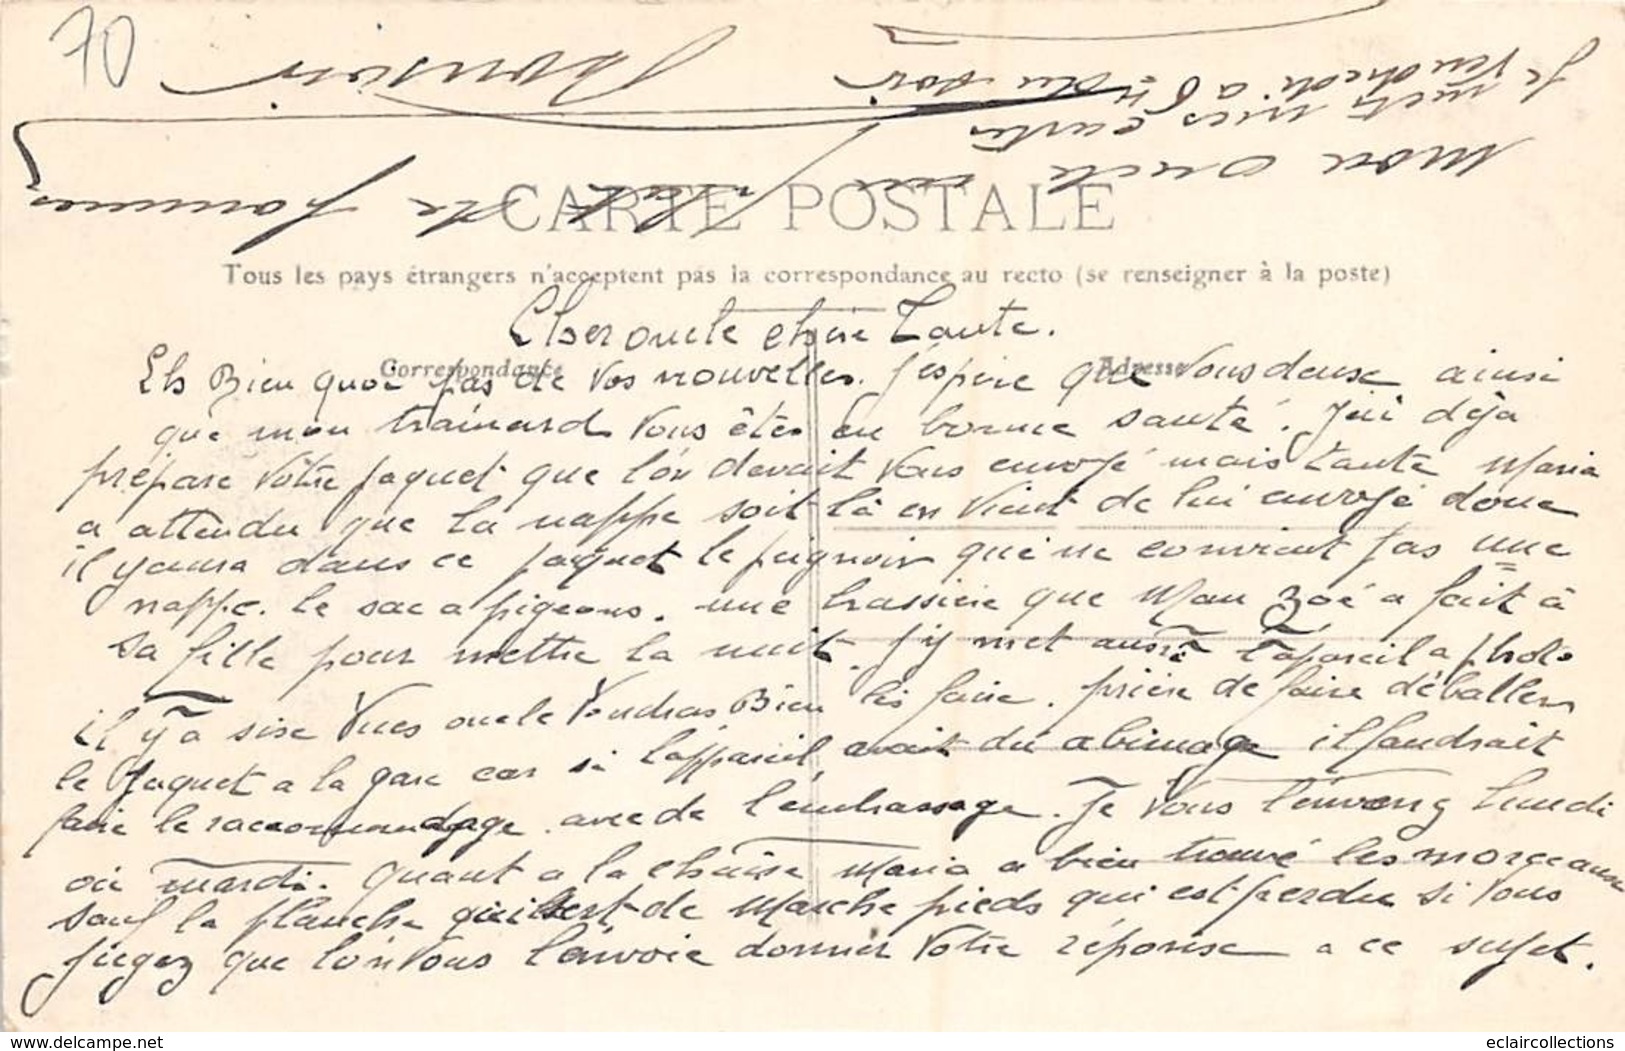 70
Bonsoir
Je
mets mes cartes
vendredi à 6 h du soir
mon oncle
de pommes
CARTE POSTALE
Tous les pays étrangers n'acceptent pas la correspondance au recto (se renseigner à la poste)
Cher oncle chère Tante.
Correspondance
Adresse
Eh Bien quoi pas de vos nouvelles. J'espère que Vous deuse ainsi
que mon trainard Vous êtes en bonne santé. J'ai déja
prépare Vôtre paquet que l'on devait Vous envoyé mais tante Maria
a attendu que la nappe soit là en Vient de lui envoyé donc
il y aura dans ce paquet le peignoir qui ne convient pas une
nappe. le sac a pigeons. une brassière que Man Zoé a fait à
sa fille pour mettre la nuit. j'y met aussi l'apareil a photo
il y a sise Vues oncle Voudras Bien les faire. prière de faire déballer
le paquet a la gare car si l'appareil avait du abimage il faudrait
faire le raccommandage avec de l'embrassage. Je Vous l'enverrez lundi
ou mardi. Quant a la chaise Maria a bien trouvé les morceaux
sauf la planche qui sert de Marche pieds qui est perdu si Vous
jugez que l'on Vous l'envoie donner Votre réponse a ce sujet.
www.delcampe.net
eclaircollections